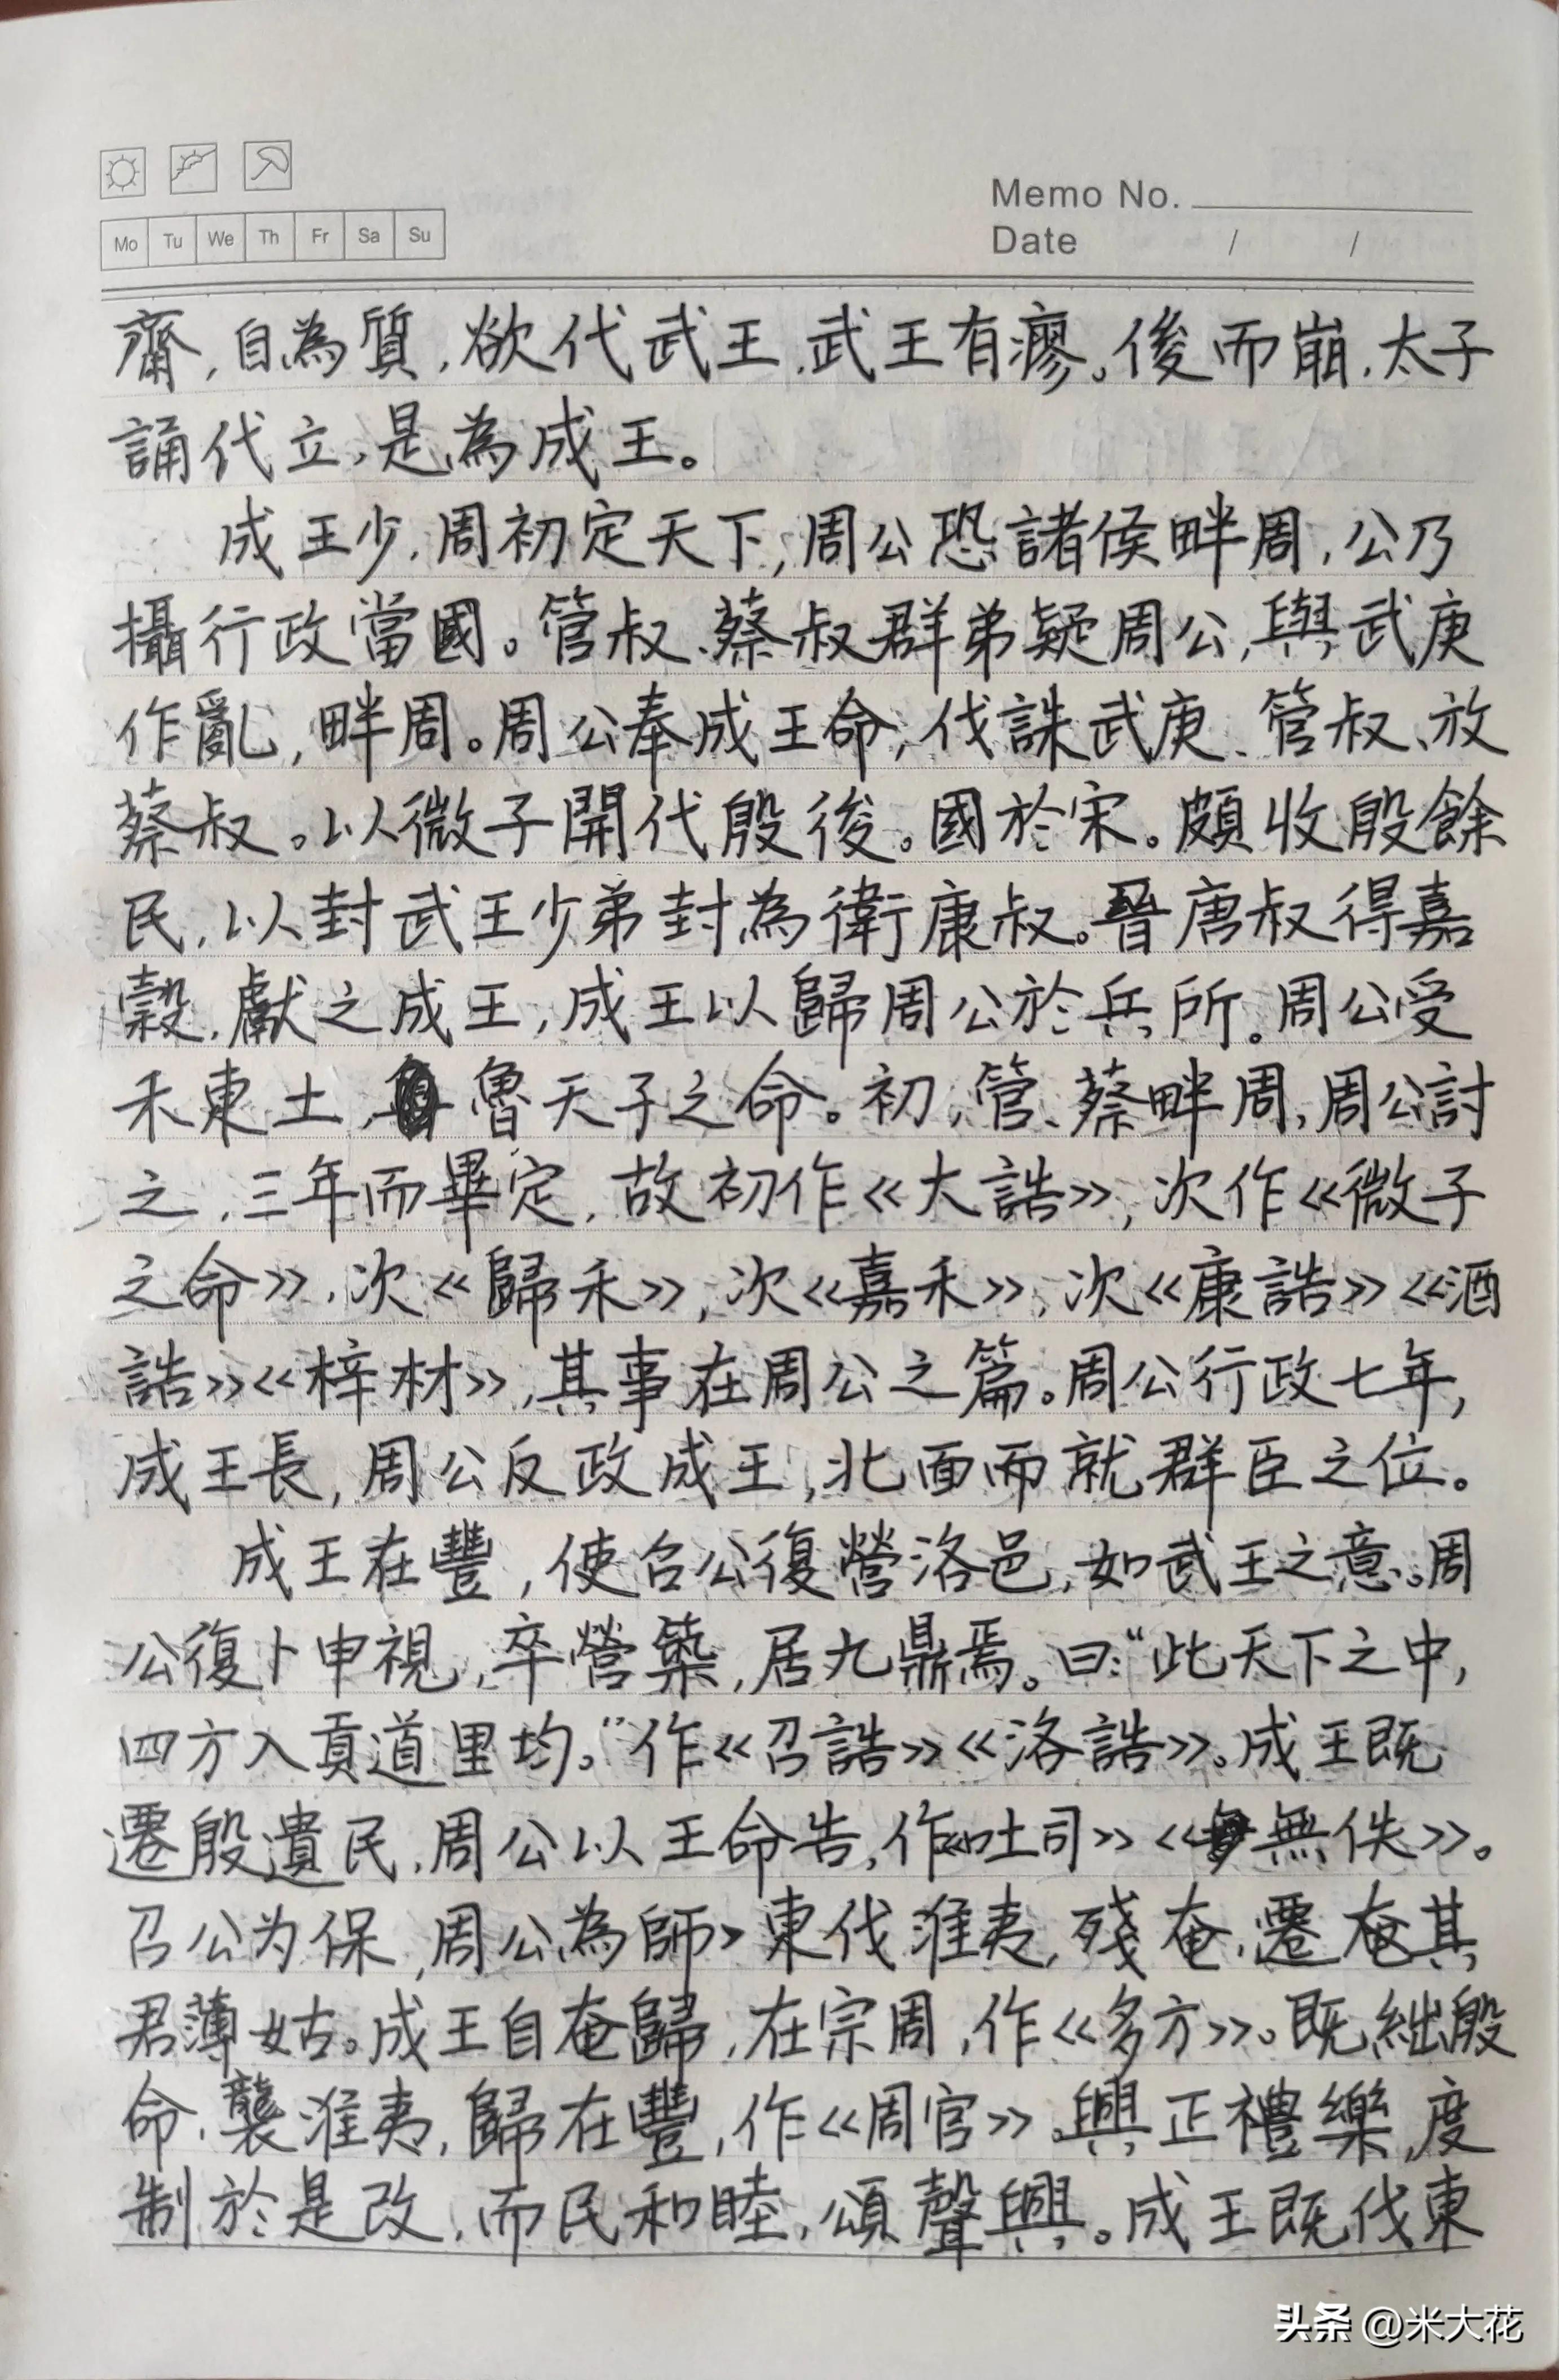 Memo No.
Mo Tu We Th Fr Sa Su
Date / /
齋,自為質,欲代武王,武王有瘳。後而崩,太子
誦代立,是為成王。
成王少,周初定天下,周公恐諸侯畔周,公乃
攝行政當國。管叔、蔡叔群弟疑周公,與武庚
作亂,畔周。周公奉成王命,伐誅武庚、管叔、放
蔡叔。以微子開代殷後。國於宋。頗收殷餘
民,以封武王少弟封為衛康叔。晉唐叔得嘉
穀,獻之成王,成王以歸周公於兵所。周公受
禾東土,魯天子之命。初,管、蔡畔周,周公討
之,三年而畢定,故初作《大誥》,次作《微子
之命》,次《歸禾》,次《嘉禾》,次《康誥》《酒
誥》《梓材》,其事在周公之篇。周公行政七年,
成王長,周公反政成王,北面而就群臣之位。
成王在豐,使召公復營洛邑,如武王之意。周
公復卜申視,卒營築,居九鼎焉。曰:“此天下之中,
四方入貢道里均。”作《召誥》《洛誥》。成王既
遷殷遺民,周公以王命告,作《吐司》《無佚》。
召公为保,周公為師,東伐淮夷,殘奄,遷奄其
君薄姑。成王自奄歸,在宗周,作《多方》。既絀殷
命,襲淮夷,歸在豐,作《周官》。興正禮樂,度
制於是改,而民和睦,頌聲興。成王既伐東
头条 @米大花